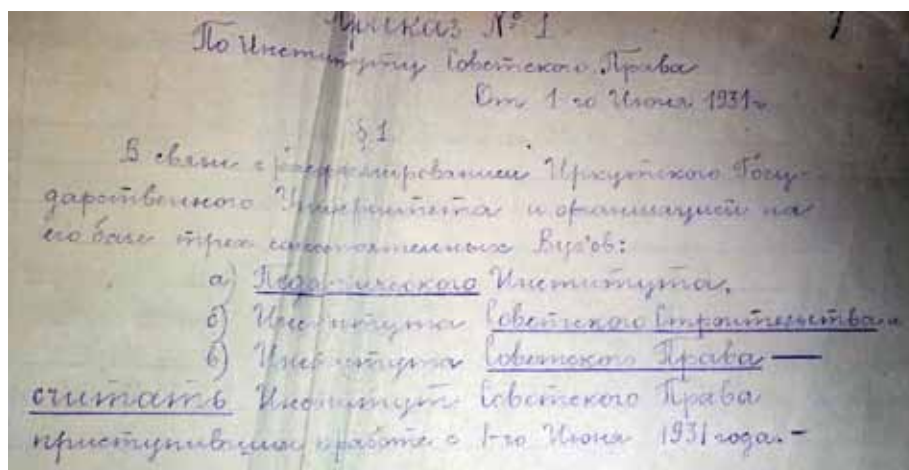 Приказ № 1
По Институту Советского Права
От 1-го Июня 1931г.
§ 1
В связи с расформированием Иркутского Госу-
дарственного Университета и организацией на
его базе трех самостоятельных Вуз'ов:
а) Педагогического Института,
б) Института Советского Строительства и
в) Института Советского Права —
считать Институт Советского Права
приступившим к работе с 1-го Июня 1931 года. -